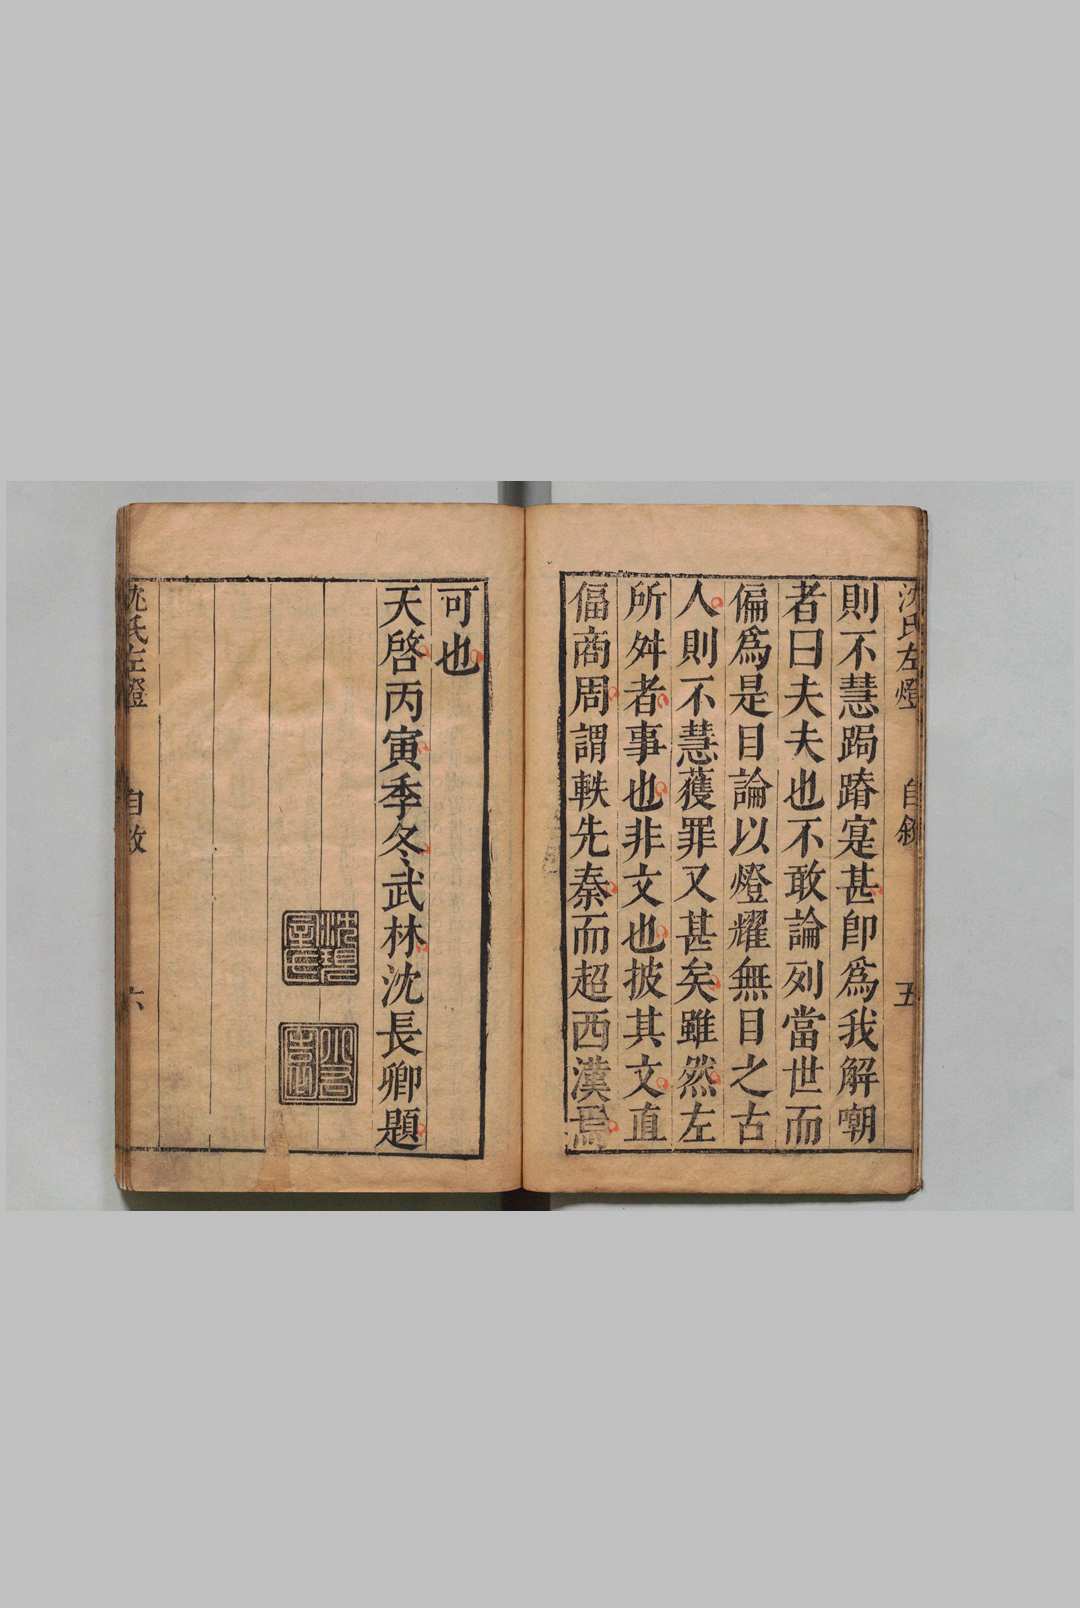 沈氏左燈 自敘 五
則不慧跼蹐寔甚卽爲我解嘲
者曰夫夫也不敢論列當世而
偏爲是目論以燈耀無目之古
人則不慧蒦罪又甚矣雖然左
所舛者事也非文也披其文直
偪商周謂軼先秦而超西漢焉
可也
天啓丙寅季冬武林沈長卿題
沈氏左燈 自敘 六